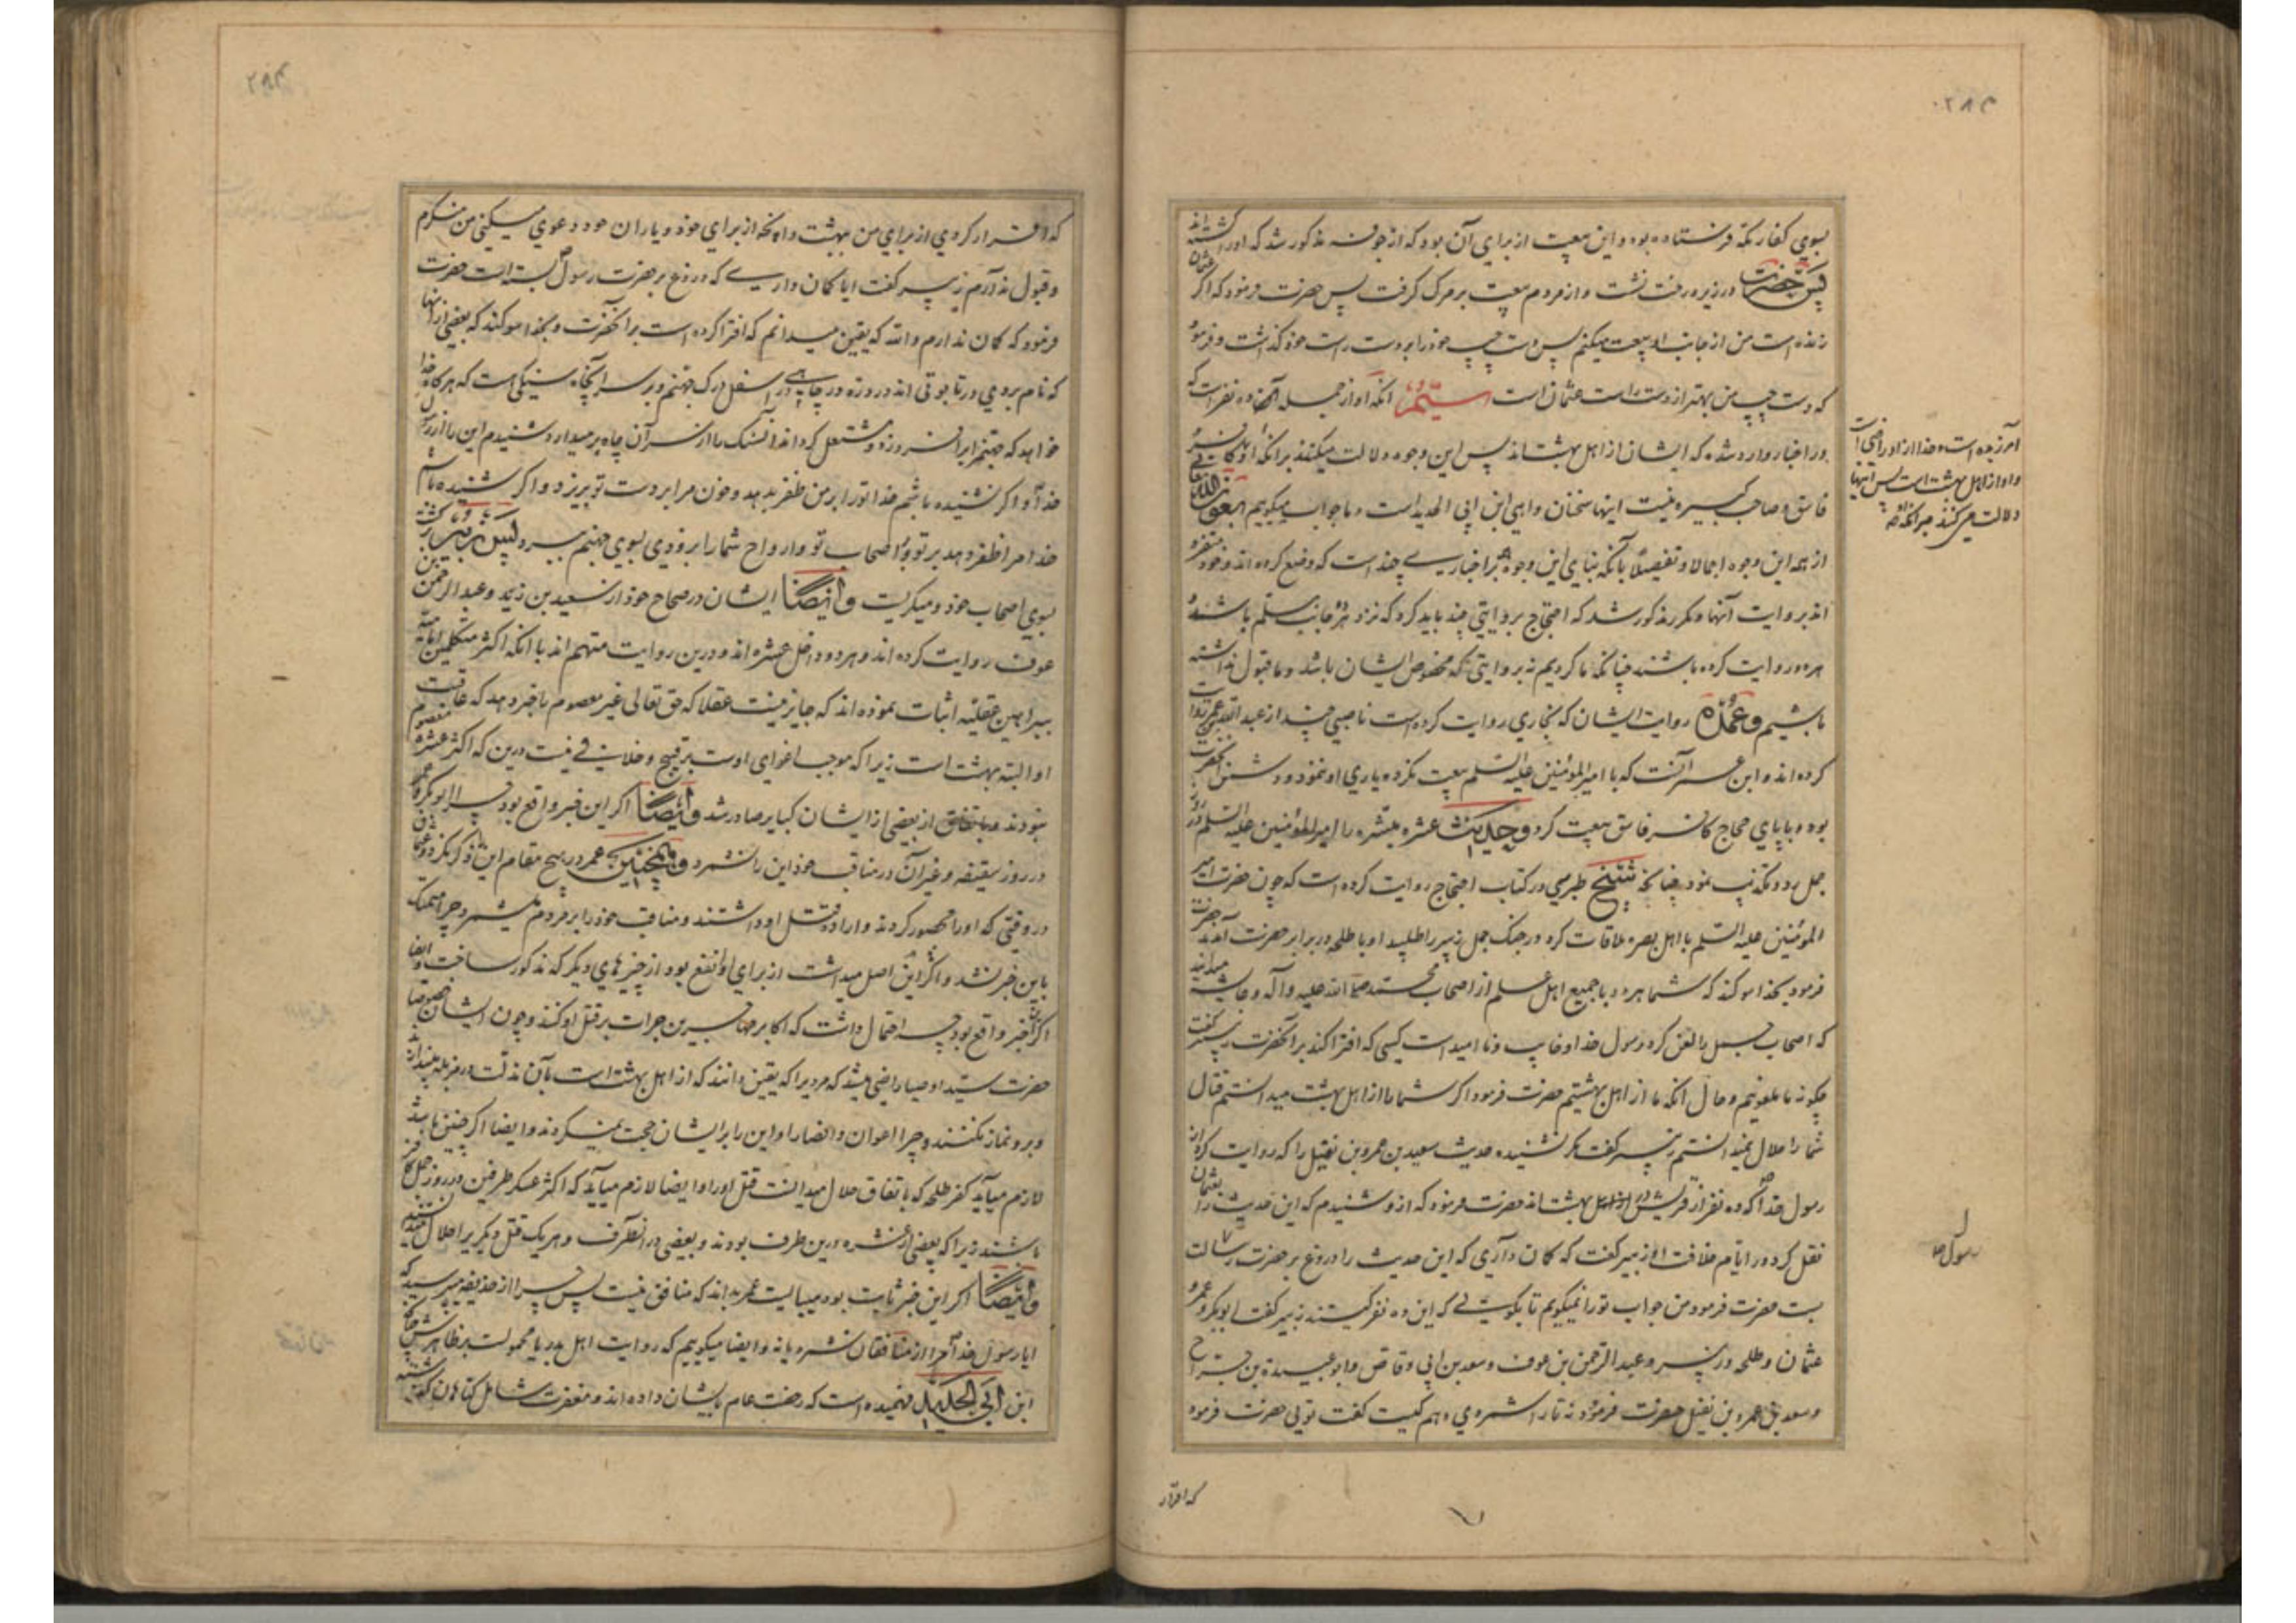 بسوی کفار مکه فرستاده بود و این بیعت از برای آن بود که مذکور شد که او را کشته اند
پس حضرت در زیر درخت نشست و از مردم بیعت بر مرک کرفت پس حضرت فرمود که اکر عثمان
زنده است من از جانب او بیعت میکنم پس دست چپ خود را بر دست راست خود کذاشت و فرمود
که دست چپ من بهتر از دست راست عثمان است سیّم انکه او از جمله آن ده نفر است که
در اخبار وارد شده که ایشان از اهل بهشت اند پس این وجوه دلالت میکنند بر انکه او کافر
فاسق و صاحب کبیره نیست اینها سخنان واهی ابن ابی الحدید است و ما جواب میکوییم بعون الله
از همه این وجوه اجمالا و تفصیلا بآنکه بنای این وجوه بر اخباری چند است که وضع کرده اند و خود متفرد
اند بروایت آنها و مکرر مذکور شد که احتجاج بروایتی چند باید کرد که نزد هر دو جانب مسلم باشد و
هر دو روایت کرده باشند چنانکه ما کردیم نه بروایتی که مخصوص ایشان باشد و ما قبول نداشته
باشیم و عمده روایت ایشان که بخاری روایت کرده است ناصبی چند از عبد الله عمر روایت
کرده اند و ابن عمر آنست که با امیر المؤمنین علیه السلم بیعت نکرد و یاری او ننمود و دشمن آنحضرت
بود و با پای حجاج کافر فاسق بیعت کرد و حدیث عشره مبشره را امیر المؤمنین علیه السلم در روز
جمل رد و تکذیب نمود چنانکه شیخ طبرسی در کتاب احتجاج روایت کرده است که چون حضرت امیر
المؤمنین علیه السلم با اهل بصره ملاقات کرد در جنک جمل زبیر را طلبید او با طلحه در برابر حضرت آمدند حضرت
فرمود بخدا سوکند که شما هر دو با جمیع اهل علم از اصحاب محمد صلی الله علیه وآله و عایشه میدانید
که اصحاب جمل را لعن کرد رسول خدا و خایب و نا امید است کسی که افترا کند بر آنحضرت زبیر کفت
چکونه ما ملعونیم و حال آنکه ما از اهل بهشتیم حضرت فرمود اکر شما را از اهل بهشت میدانستم قتال
شما را حلال نمیدانستم زبیر کفت مکر نشنیده حدیث سعید بن عمرو بن نفیل را که روایت کرد از
رسول خدا که ده نفر از قریش از اهل بهشت اند حضرت فرمود که از او شنیدم که این حدیث را بعثمان
نقل کرد در ایام خلافت او زبیر کفت که کمان داری که این حدیث را دروغ بر حضرت رسالت
بست حضرت فرمود من جواب تو را نمیکویم تا بکویی که این ده نفر کیستند زبیر کفت ابو بکر و عمر و
عثمان و طلحه و زبیر و عبد الرحمن بن عوف و سعد بن ابی وقاص و ابو عبیدة بن جراح
و سعد بن عمرو بن نفیل حضرت فرمود نه تا را شمردی دهم کیست کفت تویی حضرت فرمود
که اقرار
آمرزیده است و خدا از او راضی است
و او از اهل بهشت است پس اینها
دلالت می کنند بر انکه او
رسول خدا
که اقرار کردی از برای من بهشت را و آنچه از برای خود و یاران خود دعوی میکنی من منکرم
و قبول ندارم زبیر کفت ایا کمان داری که دروغ بر حضرت رسول بسته است حضرت
فرمود که کمان ندارم والله که یقین میدانم که افترا کرده است بر آنحضرت و بخدا سوکند که بعضی از انها
که نام بردی در تابوتی اند در دره در چاهی در اسفل درک جهنم و بر سر آن چاه سنکی است که هر کاه خدا
خواهد که جهنم را برافروزد و مشتعل کرداند آن سنک را از سر آن چاه بر میدارد شنیدم این را از رسول
خدا و اکر نشنیده باشم خدا تو را بر من ظفر بدهد و خون مرا بر دست تو بریزد و اکر شنیده باشم
خدا مرا ظفر دهد بر تو و بر اصحاب تو و ارواح شما را بزودی بسوی جهنم ببرد پس زبیر برکشت
بسوی اصحاب خود و میکریست و ایضا ایشان در صحاح خود از سعید بن زید و عبد الرحمن بن
عوف روایت کرده اند و هر دو داخل عشره اند و درین روایت متهم اند با انکه اکثر متکلمین امامیه
ببراهین عقلیه اثبات نموده اند که جایز نیست عقلا که حق تعالی غیر معصوم را خبر دهد که عاقبت
او البته بهشت است زیرا که موجب اغوای اوست بر قبیح و خلافی نیست درین که اکثر عشره معصوم
نبودند و باتفاق از بعضی از ایشان کبایر صادر شد و ایضا اکر این خبر واقع بود چرا ابو بکر و عمر
در روز سقیفه و غیر آن در مناقب خود این را نشمرد و همچنین عمر در هیچ مقام این را ذکر نکرد و عثمان
در وقتی که او را محصور کردند و اراده قتل او داشتند و مناقب خود را بر مردم میشمرد چرا متمسک
باین خبر نشد و اکر این اصل میداشت از برای او انفع بود از چیزهای دیکر که مذکور ساخت و ایضا
اکر این خبر واقع بود چه احتمال داشت که اکابر مهاجرین جرات بر قتل او کنند و چون ایشان خصوصا
حضرت سید اوصیا راضی میشد که مردیرا که یقین دانند که از اهل بهشت است بآن مذلت در مزبله بیندازند
و برو نماز نکنند و چرا اعوان و انصار او این را بر ایشان حجت نمیکردند و ایضا اکر چنین باشد
لازم میآید کفر طلحه که باتفاق حلال میدانست قتل او را و ایضا لازم میآید که اکثر عسکر طرفین در روز جمل کافر
باشند زیرا که بعضی از عشره درین طرف بودند و بعضی در آنطرف و هر یک قتل دیکریرا حلال میدانستند
و ایضا اکر این خبر ثابت بود میبایست عمر بداند که منافق نیست پس چرا از حذیفه میپرسید که
ایا رسول خدا مرا از منافقان شمرد یا نه و ایضا میکوییم که روایت اهل بدر یا محمولست بر ظاهرش چنانکه
ابن ابی الحدید فهمیده است که رخصت عام بایشان داده اند و مغفرت شامل کناهان کذشته